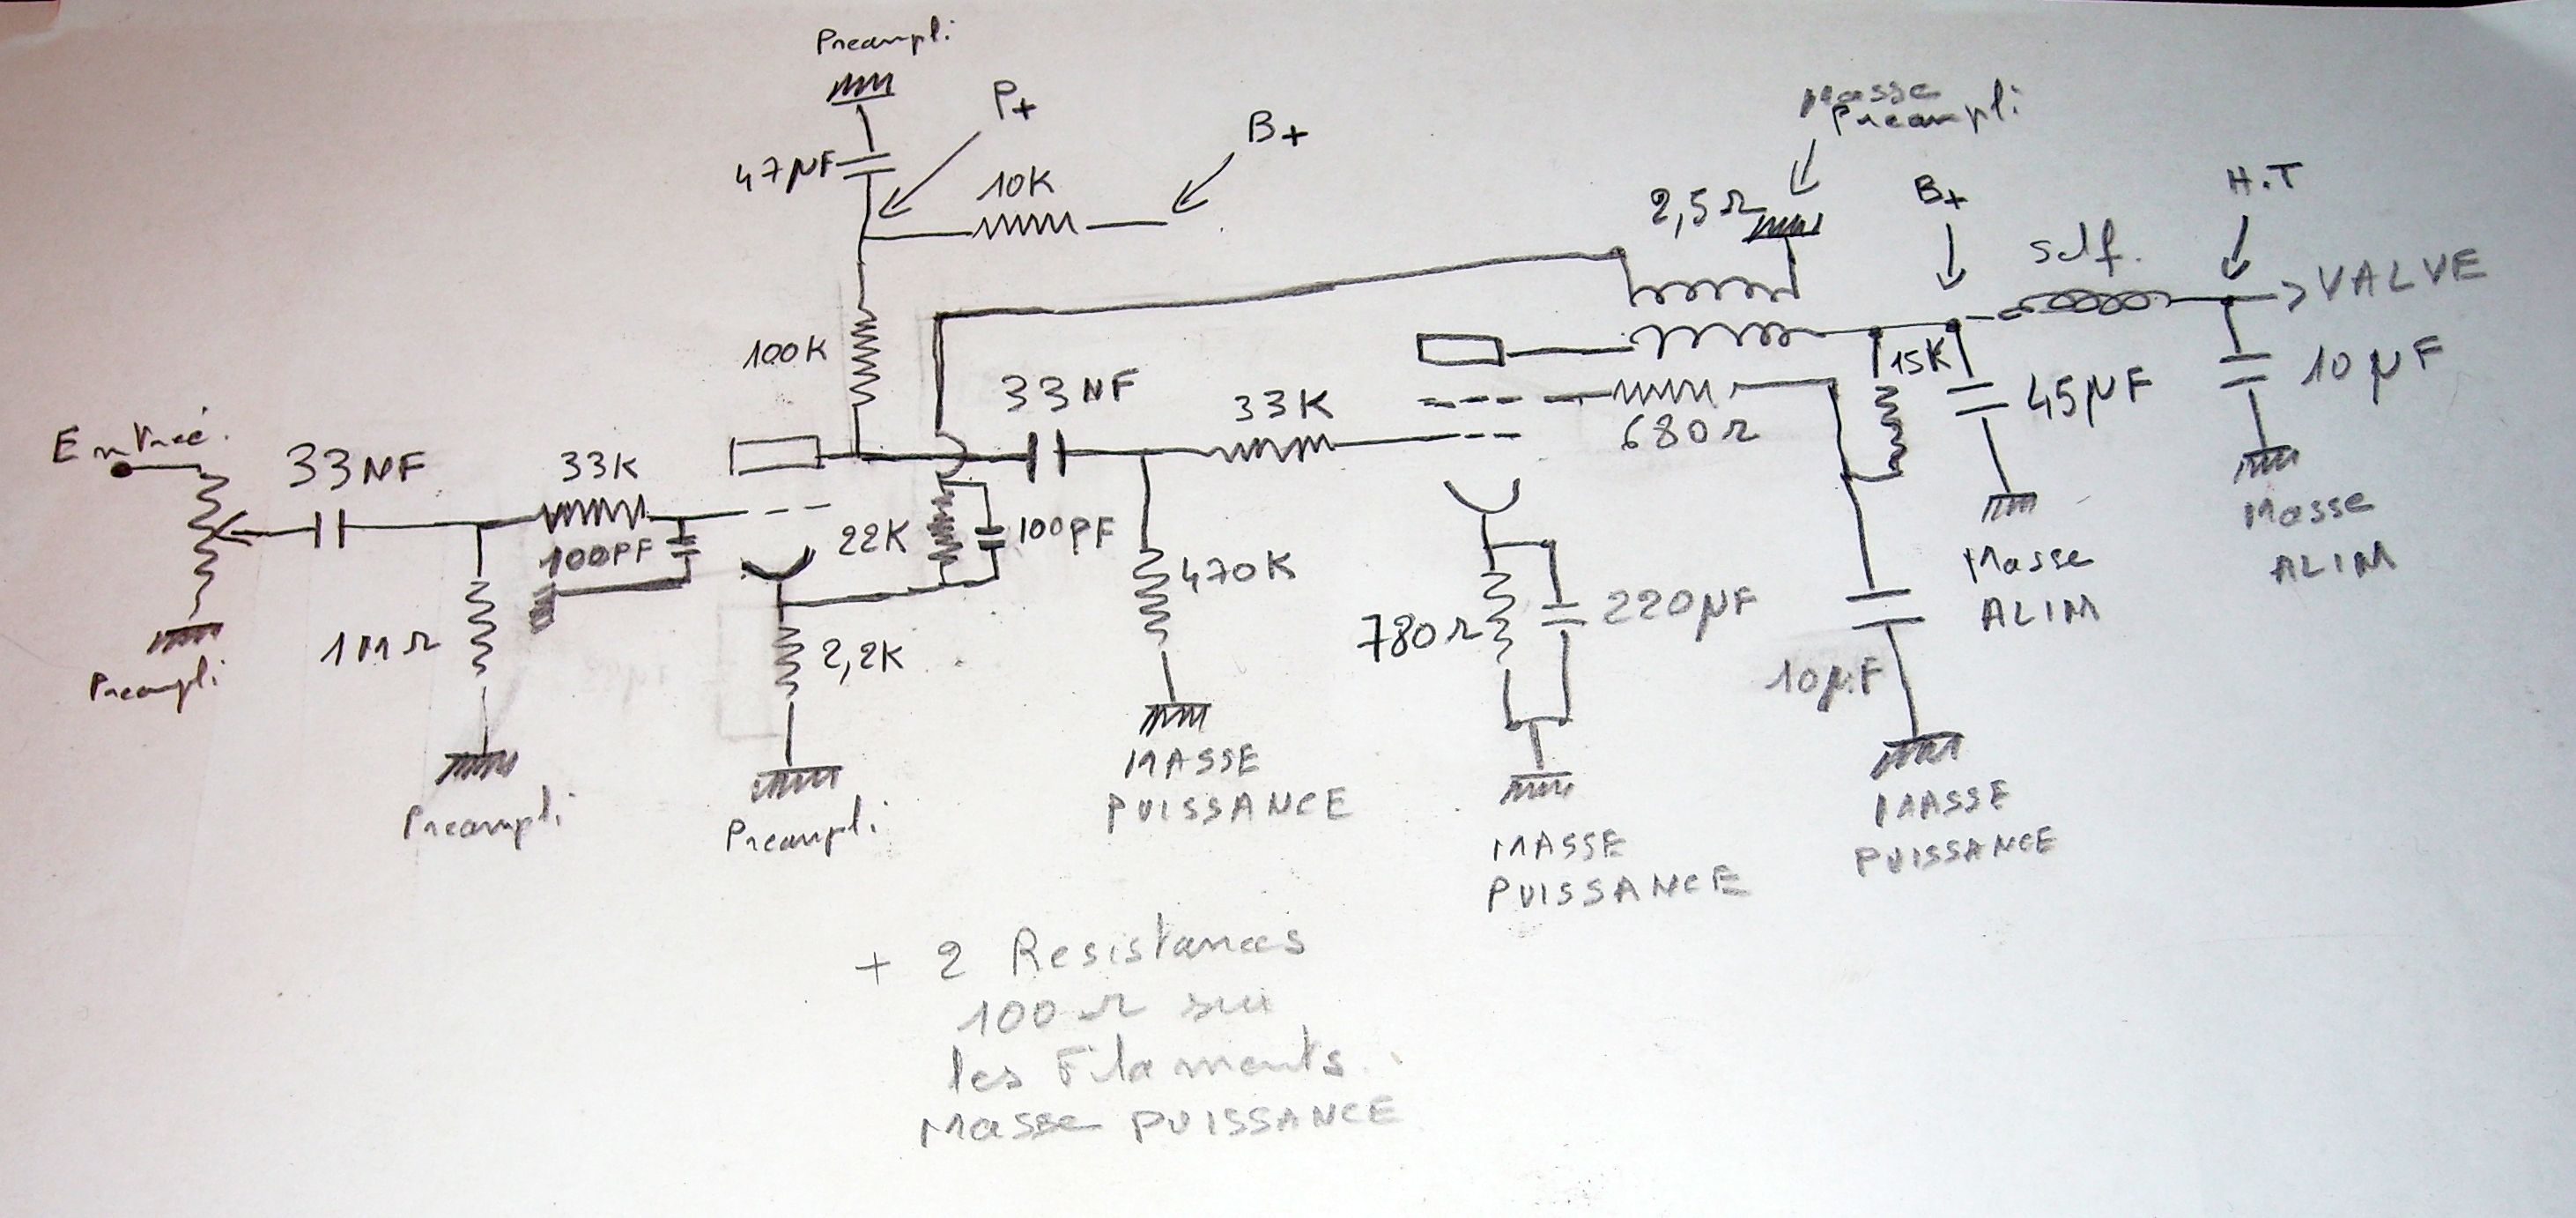 Preampli
P+
B+
47µF
10K
Masse
Preampli
2,5Ω
B+
H.T
self.
VALVE
100K
33NF
33K
15K
45µF
10µF
680Ω
Entrée.
33NF
33K
100PF
22K
100PF
470K
1MΩ
2,2K
780Ω
220µF
10µF
Masse
ALIM
Masse
ALIM
Preampli
Preampli
Preampli
MASSE
PUISSANCE
MASSE
PUISSANCE
MASSE
PUISSANCE
+ 2 Resistances
100Ω sur
les Filaments.
Masse PUISSANCE